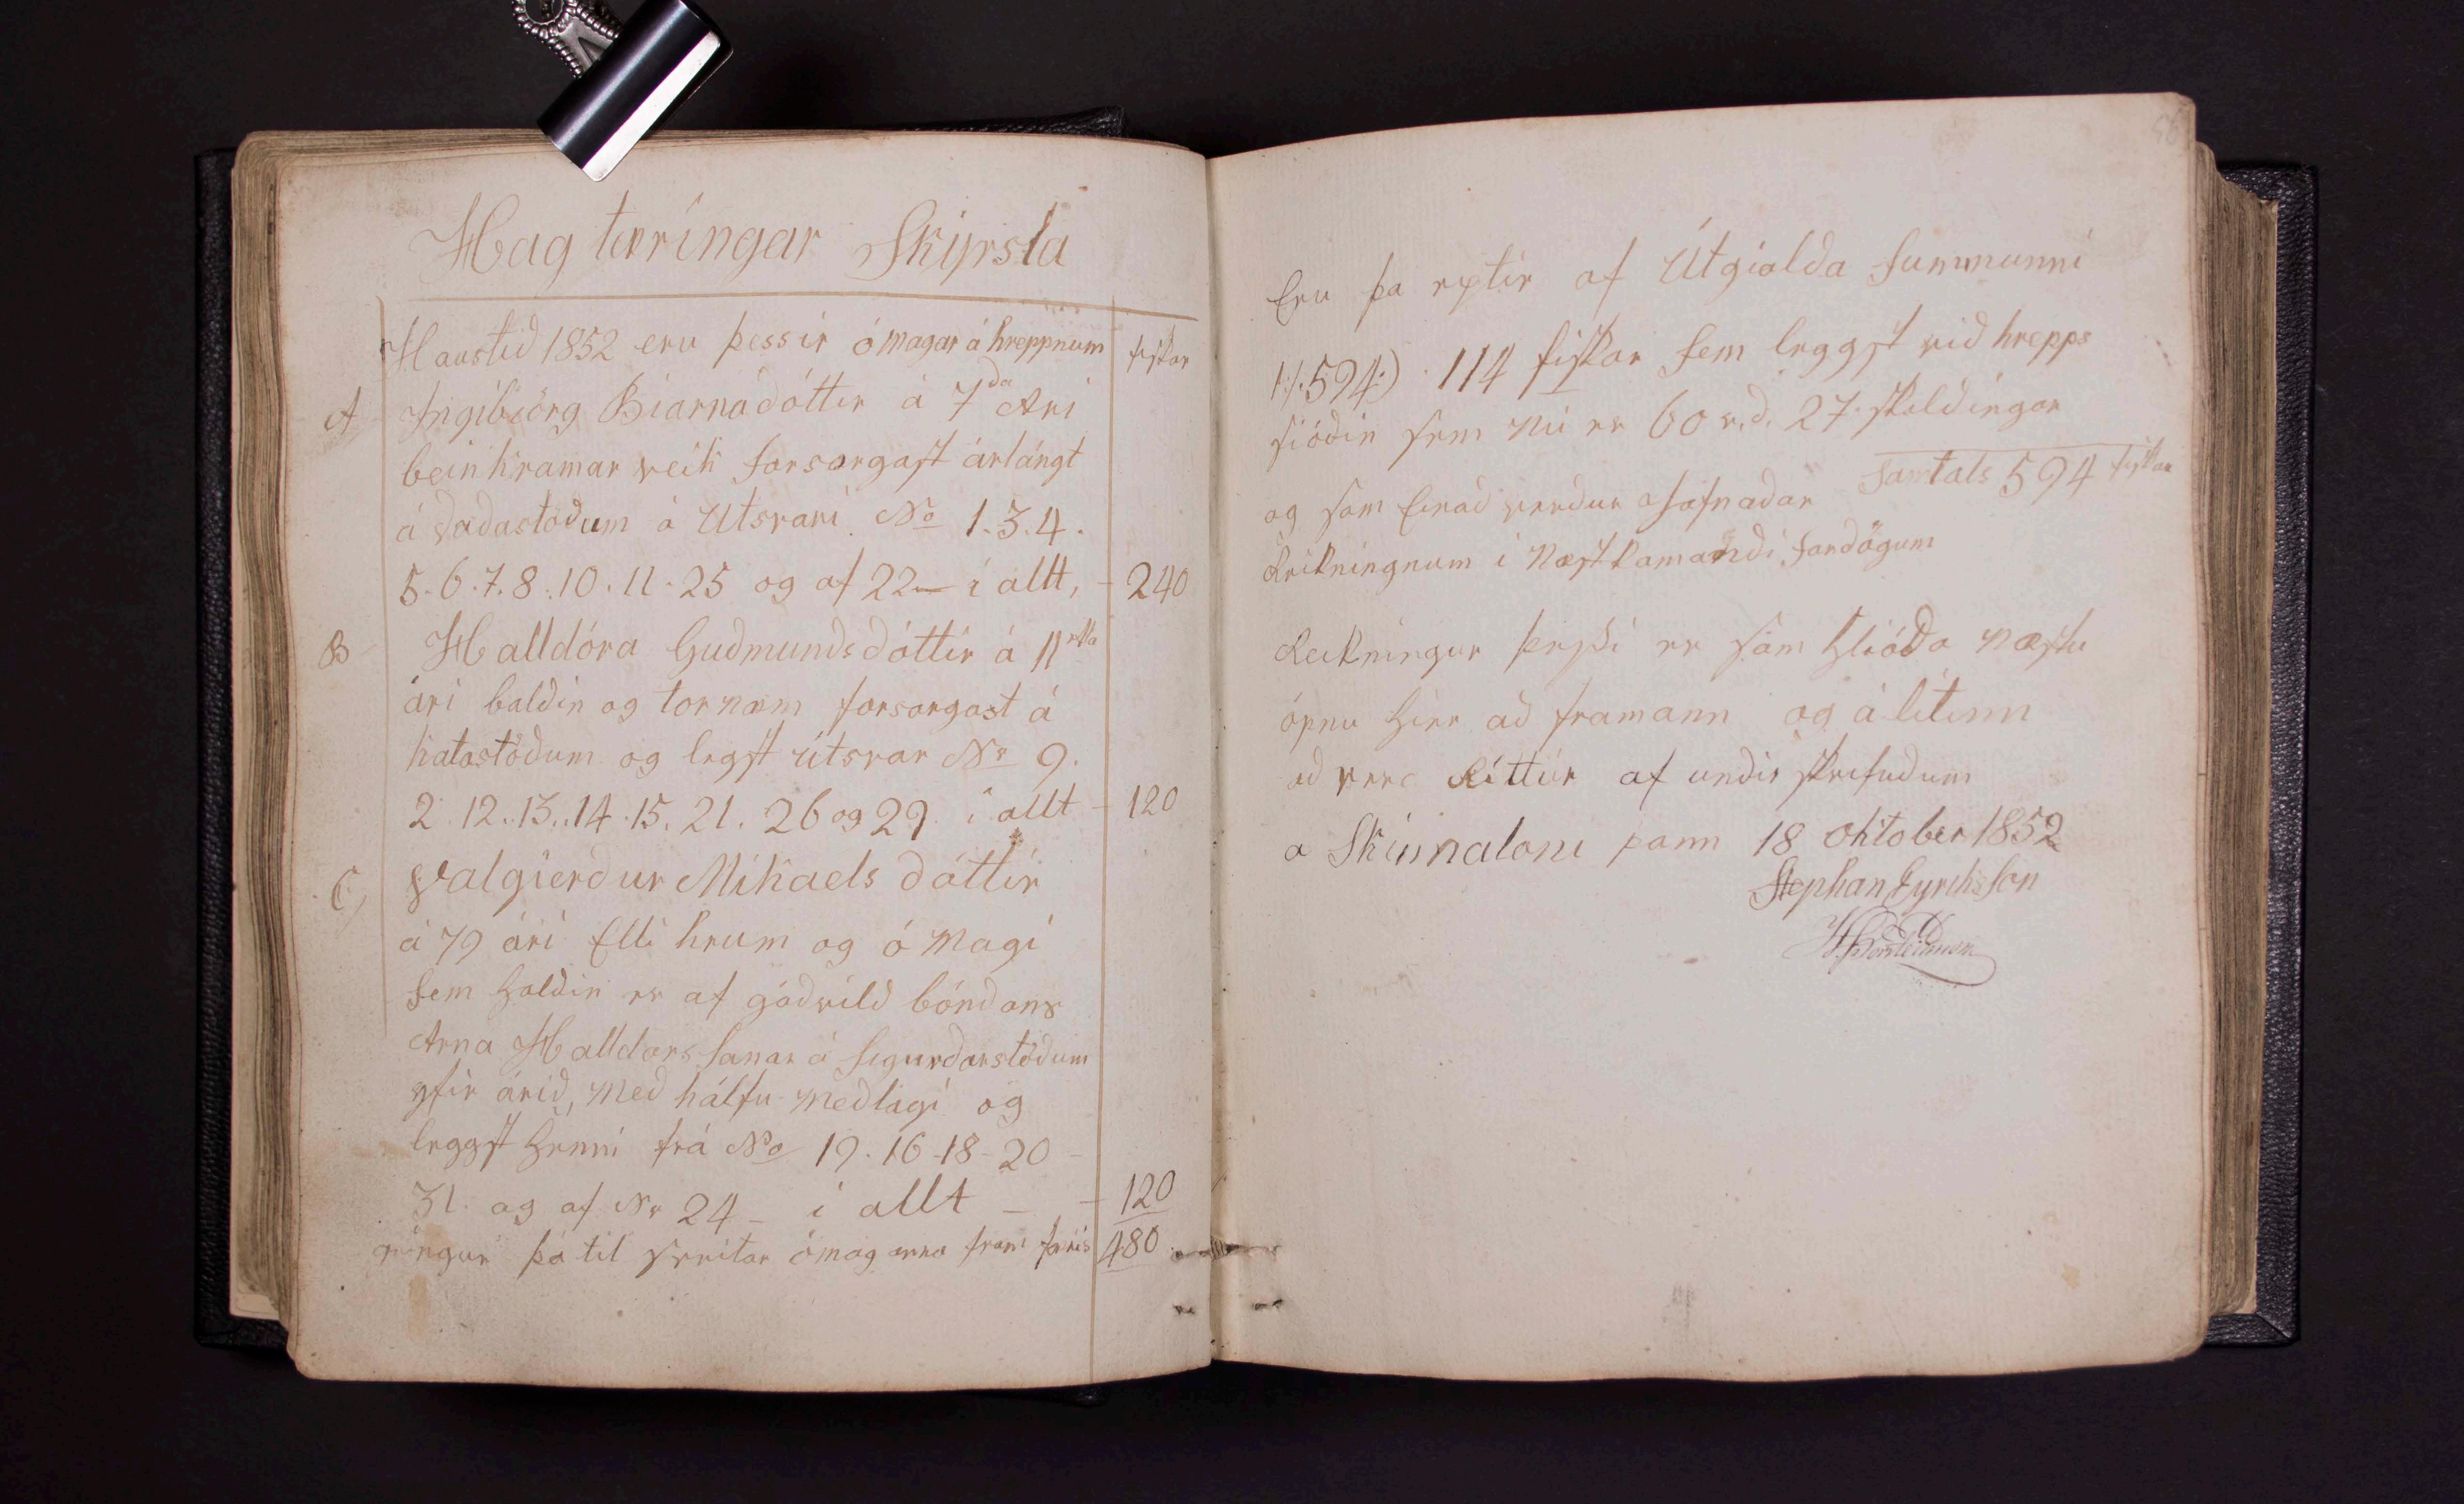 Hagtæringar Skýrsla
Haustið 1852 eru þessir ómagar á hreppnum fiskar
A Ingibiörg Biarnadóttir á 7da Ari
beinkramar veik forsorgast árlángt
á Daðastöðum á Utsvari No 1.3.4.
5.6.7.8.10.11.25 og af 22 — i allt, - 240
B Halldóra Guðmundsdóttir á 11ta
ári baldin og tornæm forsorgast á
katastöðum og legst útsvar Nr 9.
2.12.13.14.15.21.26 og 29. i allt - 120
C, Valgierður Mikaels dóttir
á 79 ári Elli hrum og ó magi
sem haldin er af góðvild bóndans
Arna Halldórs sonar á Sigurðarstöðum
yfir árið, með hálfu meðlagi og
leggst henni frá No 19.16-18-20 -
31. og af Nr 24 - i allt - - 120
gengur þá til sveitar ómaganna fram færis 480
58
Eru þa eptir af Útgialda summunni
1/:594:) 114 fiskar sem leggst við hrepps
sióðin sem nú er 60 r.d. 27 skildingar
samtals 594 fiskar
og sem verður
Reikningnum i næstkomandi fardögum
Reikningur þessi er sam hlióða næstu
ópnu hier að framann og álitinn
að vera Rittur af undir skrifuðum
a Skinnaloni þann 18 Oktober 1852
Stephan Eyrikssón